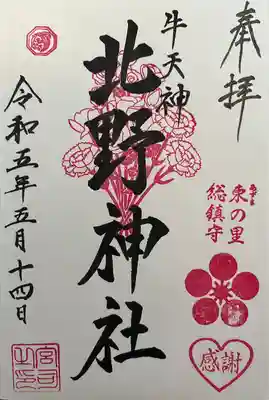 奉拝
東の里
総鎮守
感謝
牛天神
北野神社
令和五年五月十四日
宮司之印